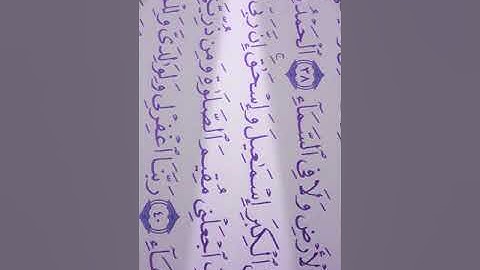 ٱلْأَرْضِ وَلَا فِى ٱلسَّمَآءِ ٣٨ ٱلْحَمْدُ
ٱلْكِبَرِ إِسْمَٰعِيلَ وَإِسْحَٰقَ إِنَّ رَبِّى
ٱجْعَلْنِى مُقِيمَ ٱلصَّلَوٰةِ وَمِن
٤٠ رَبَّنَا ٱغْفِرْ لِى وَلِوَٰلِدَىَّ